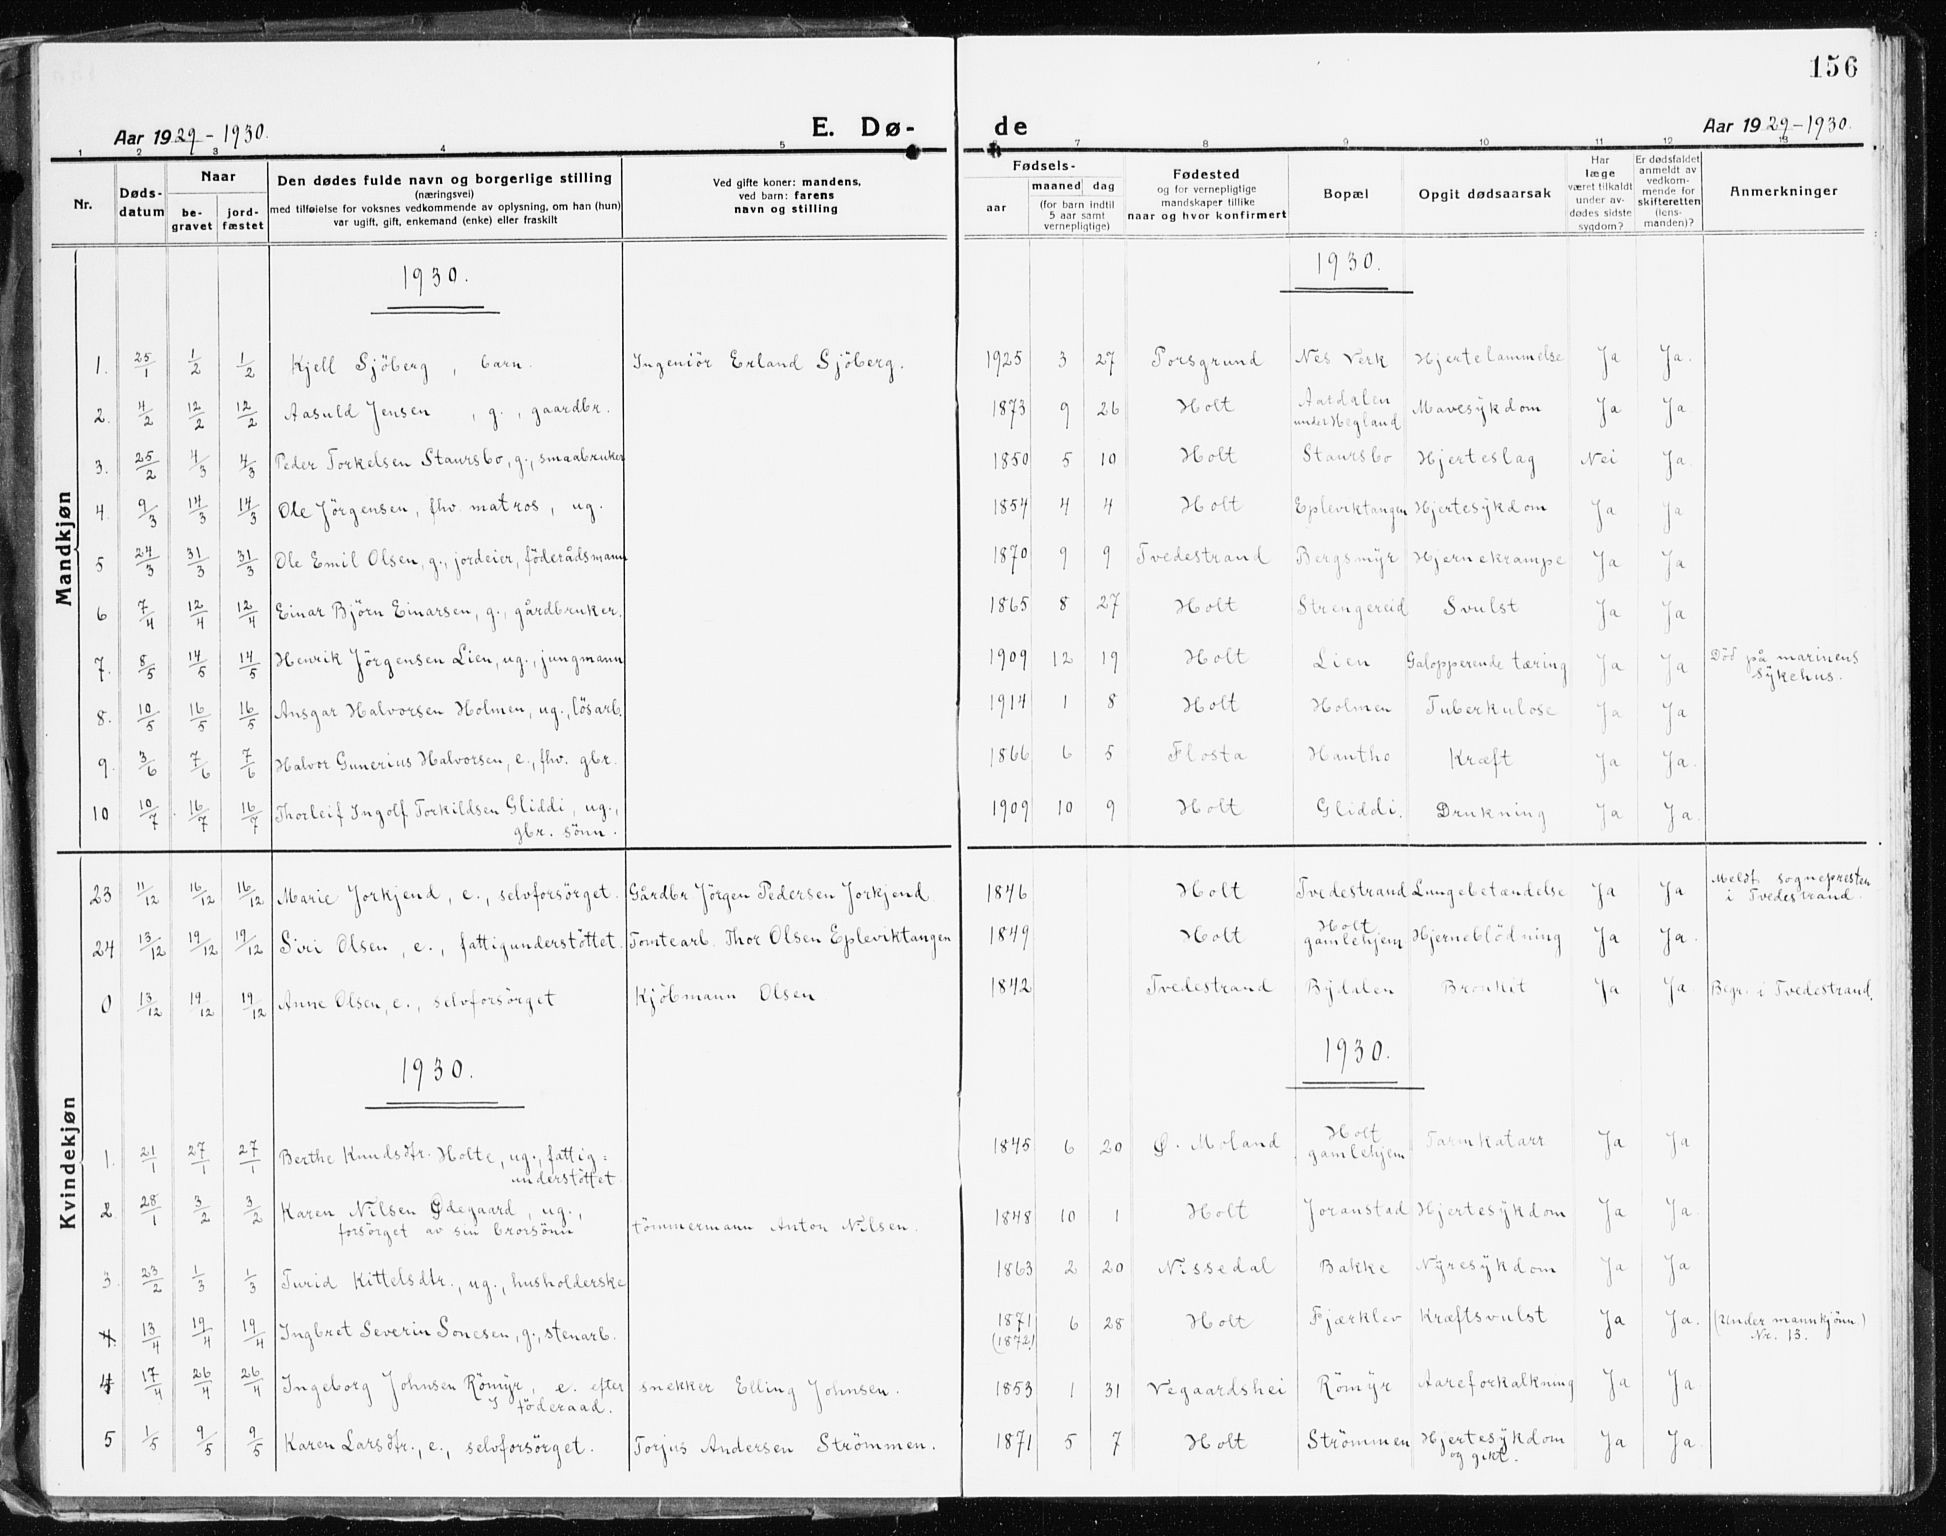 156
Aar 1929-1930. E. Dø- de Aar 1929-1930.
1 2 3 4 5 7 8 9 10 11 12 13
Nr. Døds-datum Naar be-gravet jord-fæstet Den dødes fulde navn og borgerlige stilling (næringsvei) med tilføielse for voksnes vedkommende av oplysning, om han (hun) var ugift, gift, enkemand (enke) eller fraskilt Ved gifte koner: mandens, ved barn: farens navn og stilling Fødsels- aar maaned dag (for barn indtil 5 aar samt vernepligtige) Fødested og for vernepligtige mandskaper tillike naar og hvor konfirmert Bopæl Opgit dødsaarsak Har læge været tilkaldt under av-dødes sidste sygdom? Er dødsfaldet anmeldt av vedkom-mende for skifteretten (lens-manden)? Anmerkninger
Mandkjøn
1930. 1930.
1. 25/1 1/2 1/2 Kjell Sjöberg, barn. Ingeniör Erland Sjöberg. 1925 3 27 Porsgrund Nes Verk Hjertelammelse Ja Ja.
2. 4/2 12/2 12/2 Aasuld Jensen, g., gaardbr. 1873 9 26 Holt Aasdalen under Hegland Mavesykdom Ja Ja.
3. 25/2 4/3 4/3 Peder Torkelsen Staursbo, g., smaabruker 1850 5 10 Holt Staursbo Hjerteslag Nei Ja.
4. 9/3 14/3 14/3 Ole Jörgensen, fhv. matros, ug. 1854 4 4 Holt Epleviktangen Hjertesykdom Ja Ja
5 24/3 31/3 31/3 Ole Emil Olsen, g., jordeier, föderådsmann 1870 9 9 Tvedestrand Bergsmyr Hjernekrampe Ja Ja
6 7/4 12/4 12/4 Einar Björn Einarsen, g., gårdbruker. 1865 8 27 Holt Strengereid Svulst Ja Ja
7. 8/5 14/5 14/5 Henrik Jörgensen Lien, ug., jungmann 1909 12 19 Holt Lien Galopperende tæring Ja Ja Död på marinens sykehus.
8. 10/5 16/5 16/5 Ansgar Halvorsen Holmen, ug., lösarb. 1914 1 8 Holt Holmen Tuberkulose Ja Ja
9. 3/6 7/6 7/6 Halvor Gunerius Halvorsen, e., fhv. gbr. 1866 6 5 Flosta Hantho Kræft Ja Ja.
10 10/7 16/7 16/7 Thorleif Ingolf Torkildsen Gliddi, ug., gbr. sönn. 1909 10 9 Holt Gliddi. Drukning Ja Ja.
Kvindekjøn
23 11/12 16/12 16/12 Marie Jorkjend, e., selvforsörget. Gårdbr Jörgen Pedersen Jorkjend 1846 Holt Tvedestrand Lungebetændelse Ja Ja Meldt sognepresten i Tvedestrand.
24 13/12 19/12 19/12 Siri Olsen, e., fattigunderstöttet. Tomtearb. Thor Olsen Epleviktangen 1849 Holt Holt gamlehjem Hjerneblödning Ja Ja.
0 13/12 19/12 19/12 Anne Olsen, e., selvforsörget Kjöbmann Olsen 1842 Tvedestrand Bydalen Bronkit Ja Ja. Begr. i Tvedestrand.
1930. 1930.
1. 21/1 27/1 27/1 Berthe Knudsdtr. Holte, ug., fattig: understöttet. 1845 6 20 Ø. Moland Holt gamlehjem Tarmkatarr Ja Ja
2 28/1 3/2 3/2 Karen Nilsen Ødegaard, ug., forsörget av sin brorsönn tömmermann Anton Nilsen. 1848 10 1 Holt Joranstad Hjertesykdom Ja Ja.
3. 23/2 1/3 1/3 Turid Kittelsdtr., ug., husholderske 1863 2 20 Nissedal Bakke Nyresykdom Ja Ja
4. 13/4 19/4 19/4 Ingbret Severin Sonesen, g., stenarb. 1871 (1872) 6 28 Holt Fjærklev Kræftsvulst Ja Ja. (Under mannkjönn.) Nr. 13.
4 17/4 26/4 26/4 Ingeborg Johnsen Römyr, e. efter föderaad. snekker Elling Johnsen. 1853 1 31 Vegaardshei Römyr Aareforkalkning Ja Ja.
5 1/5 9/5 9/5 Karen Larsdtr., e., selvforsörget. Torjus Andersen Strömmen. 1871 5 7 Holt Strömmen Hjertesykdom og gikt. Ja Ja.